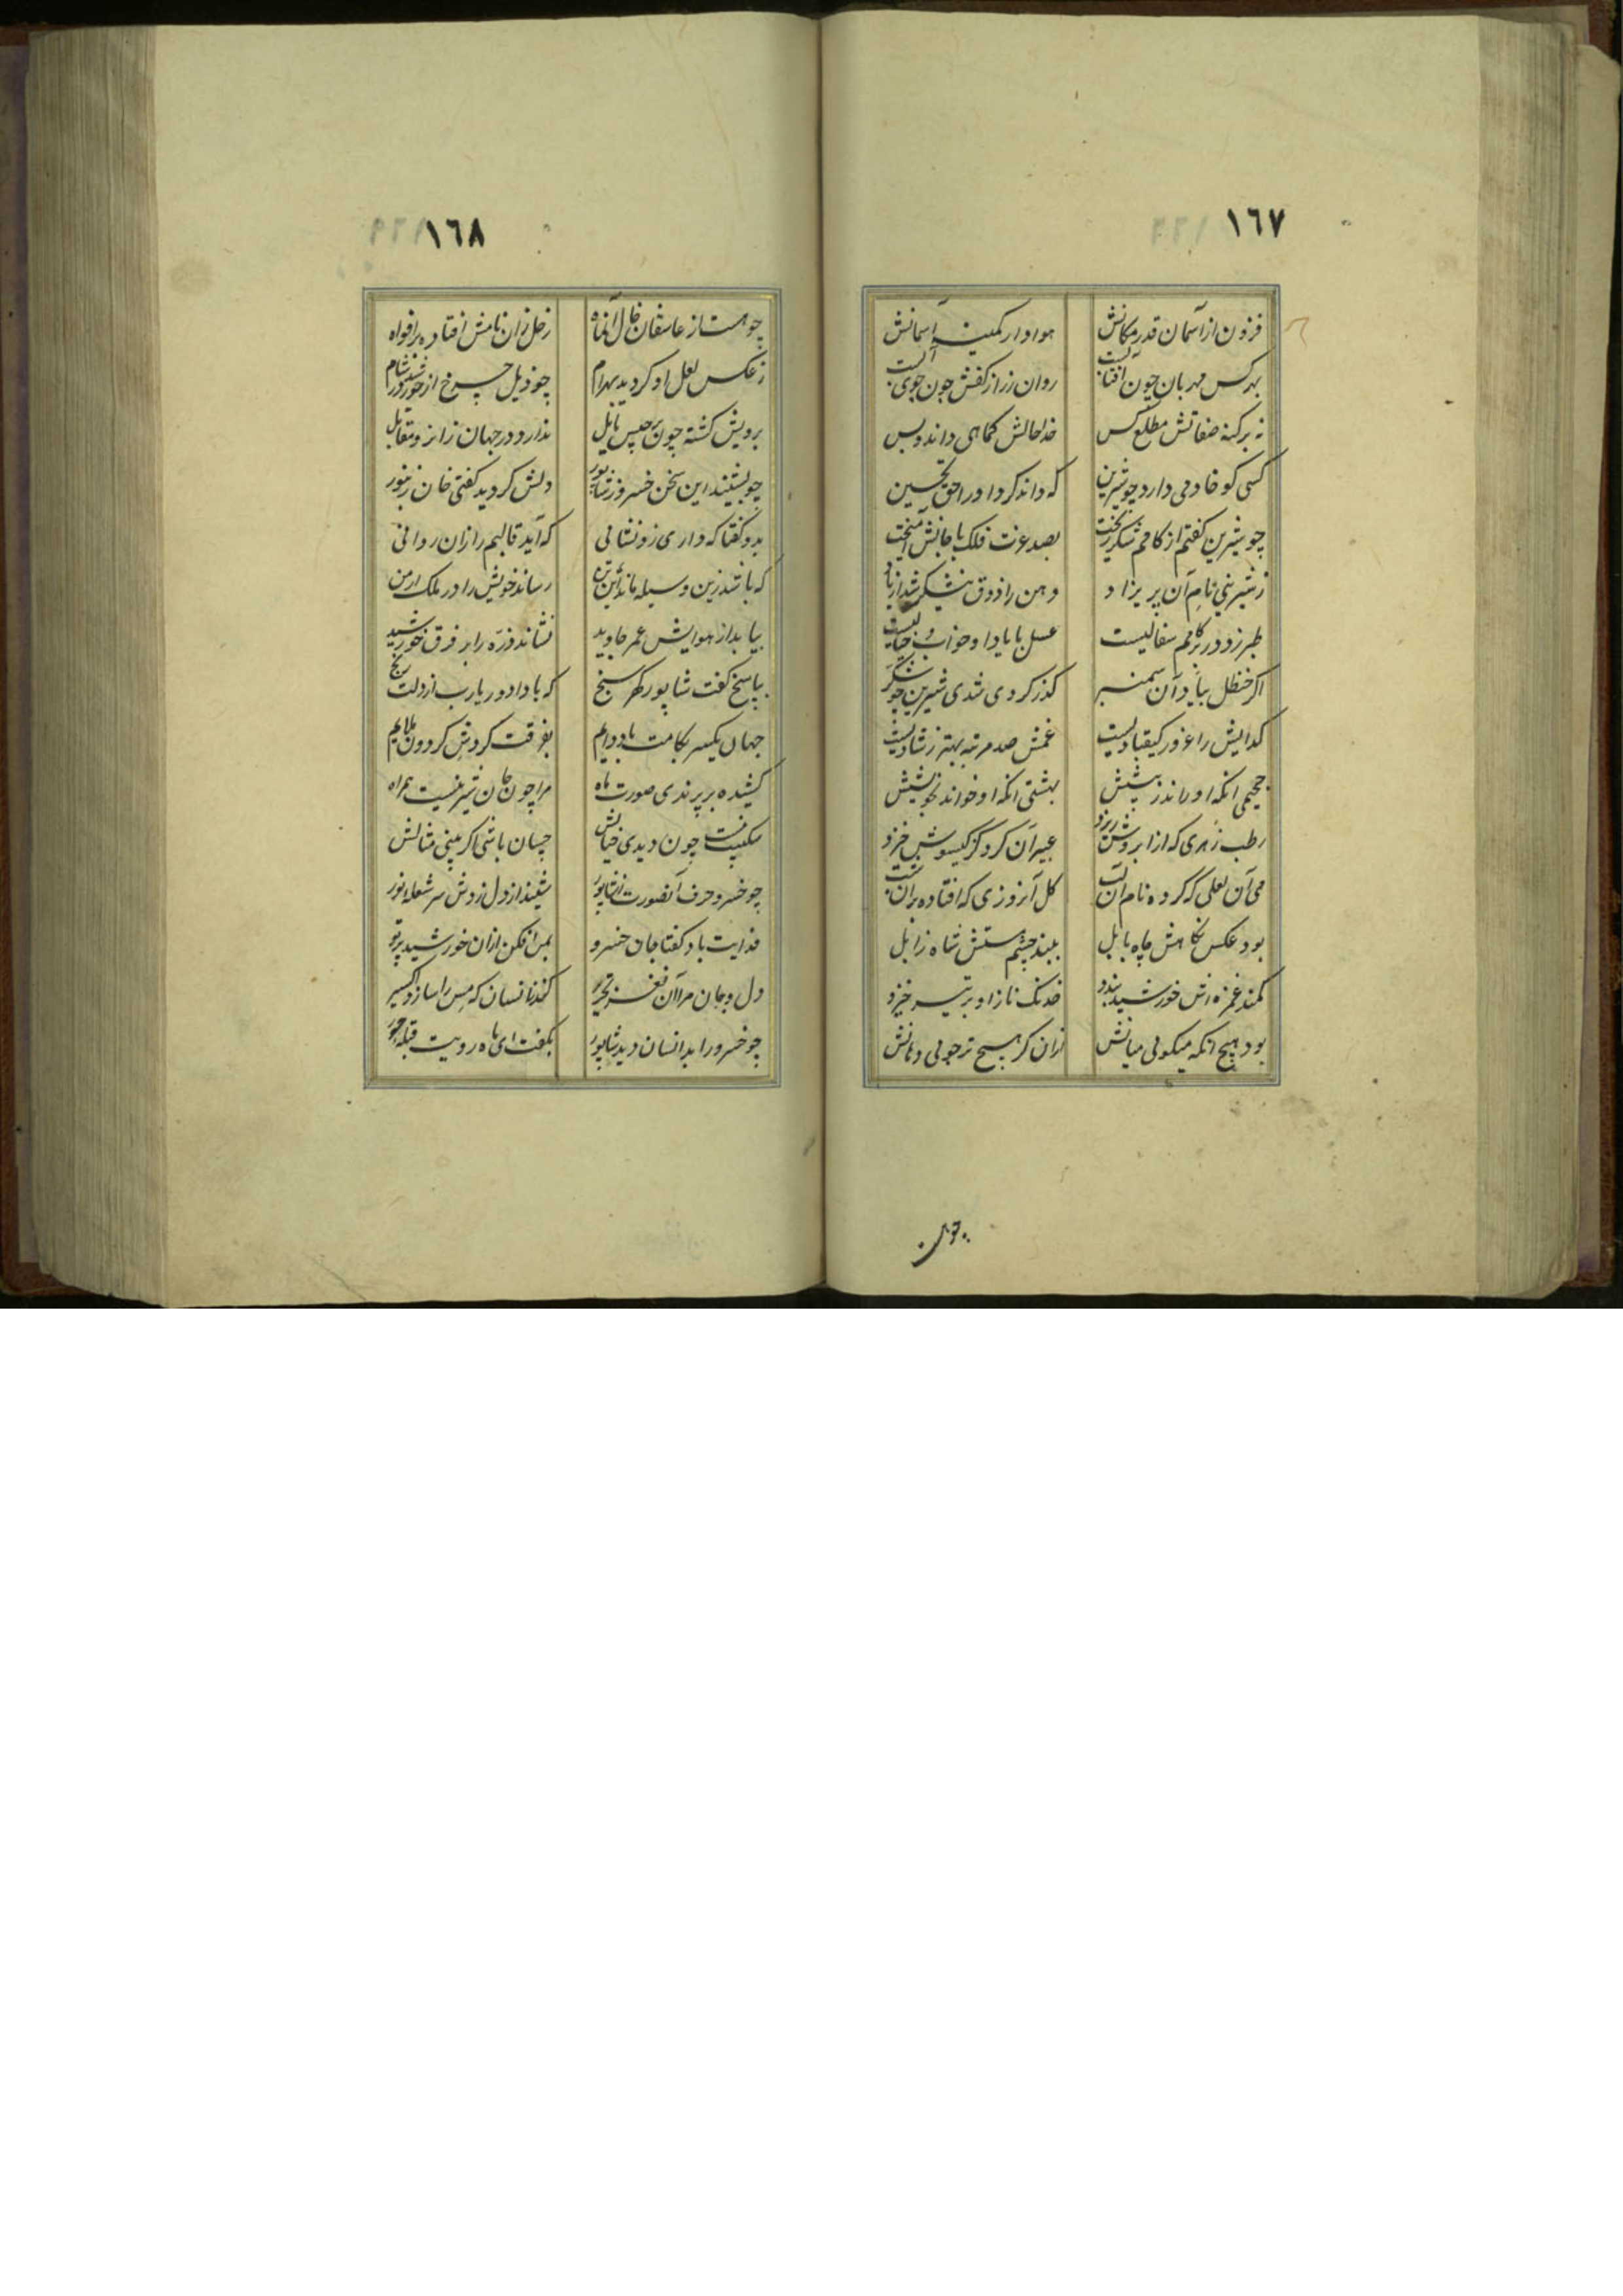 ١٦٧
فزون از آسمان قدر مکانش هوادار کمینه آسمانش
بهر کس مهربان چون آفتابست روان زر از کفش چون جوی آبست
نه بر کنه صفاتش مطلع کس خدا حالش کماهی داند و بس
کسی کو خادمی دارد چو شیرین که داند کرد او را حق تحسین
چو شیرین گفتم از کامم شکر ریخت بصد عزت فلک با جانش آمیخت
ز شیرینی نام آن پریزاد دهن را ذوق نیشکر شد از یاد
طبرزد در برکامم سفالیست عسل با یاد او خواب و خیالیست
اگر حنظل بیاد آن سمنبر گذر کردی شدی شیرین چو شکر
گدایش را غرور کیقبادیست غمش صد مرتبه بهتر ز شادیست
جحیمی آنکه او راند ز پیشش بهشتی آنکه او خواند بخویشش
رطب زهری که از ابروش ریزد عبیر آن گرد کز گیسوش خیزد
می آن لعلی که کرده نام آن لب گل آنروزی که افتاده بر آن شب
بود عکس نگاهش چاه بابل ببند چشم مستش شاه زابل
کمند غمزه اش خورشید بندد خدنگ ناز او بر تیر خیزد
بود هیچ آنکه میگوئی میانش ازان گر هیچ تر جوئی دهانش
١٦٨
چو هست از عاشقان خال آنماه زحل زان نامش افتاده بر افواه
ز عکس لعل او گردید بهرام چو ذیل چرخ از خورشید در شام
برویش گشته چون برجیس مایل ندارد در جهان زانرو مقابل
چو بشنید این سخن خسرو ز شاپور دلش گردید گفتی خان زنبور
بدو گفتا که داری زو نشانی که آید قالبم را زان روانی
که باشد زین وسیله مانده این تن رساند خویش را در ملک ارمن
بیابد از هوایش عمر جاوید نشاند ذره را بر فرق خورشید
بپاسخ گفت شاپور گهر سنج که بادا دور یارب از دلت رنج
جهان یکسر بکامت باد دایم بفرقت گردش گردون ملایم
کشیده بر پرندی صورت ماه مرا چون جان شیرینست همراه
شکیبت نیست چون دیدی خیالش چسان باشی اگر بینی مثالش
چو خسرو حرف آنصورت ز شاپور شنید از دل زدش سر شعله نور
فدایت باد گفتا جان خسرو بمن افکن ازان خورشید پرتو
دل و جان مرا آن نغز تحریر کند زانسان که مس را سازد اکسیر
چو خسرو را بدانسان دید شاپور بگفت ای ماه رویت قبله حور